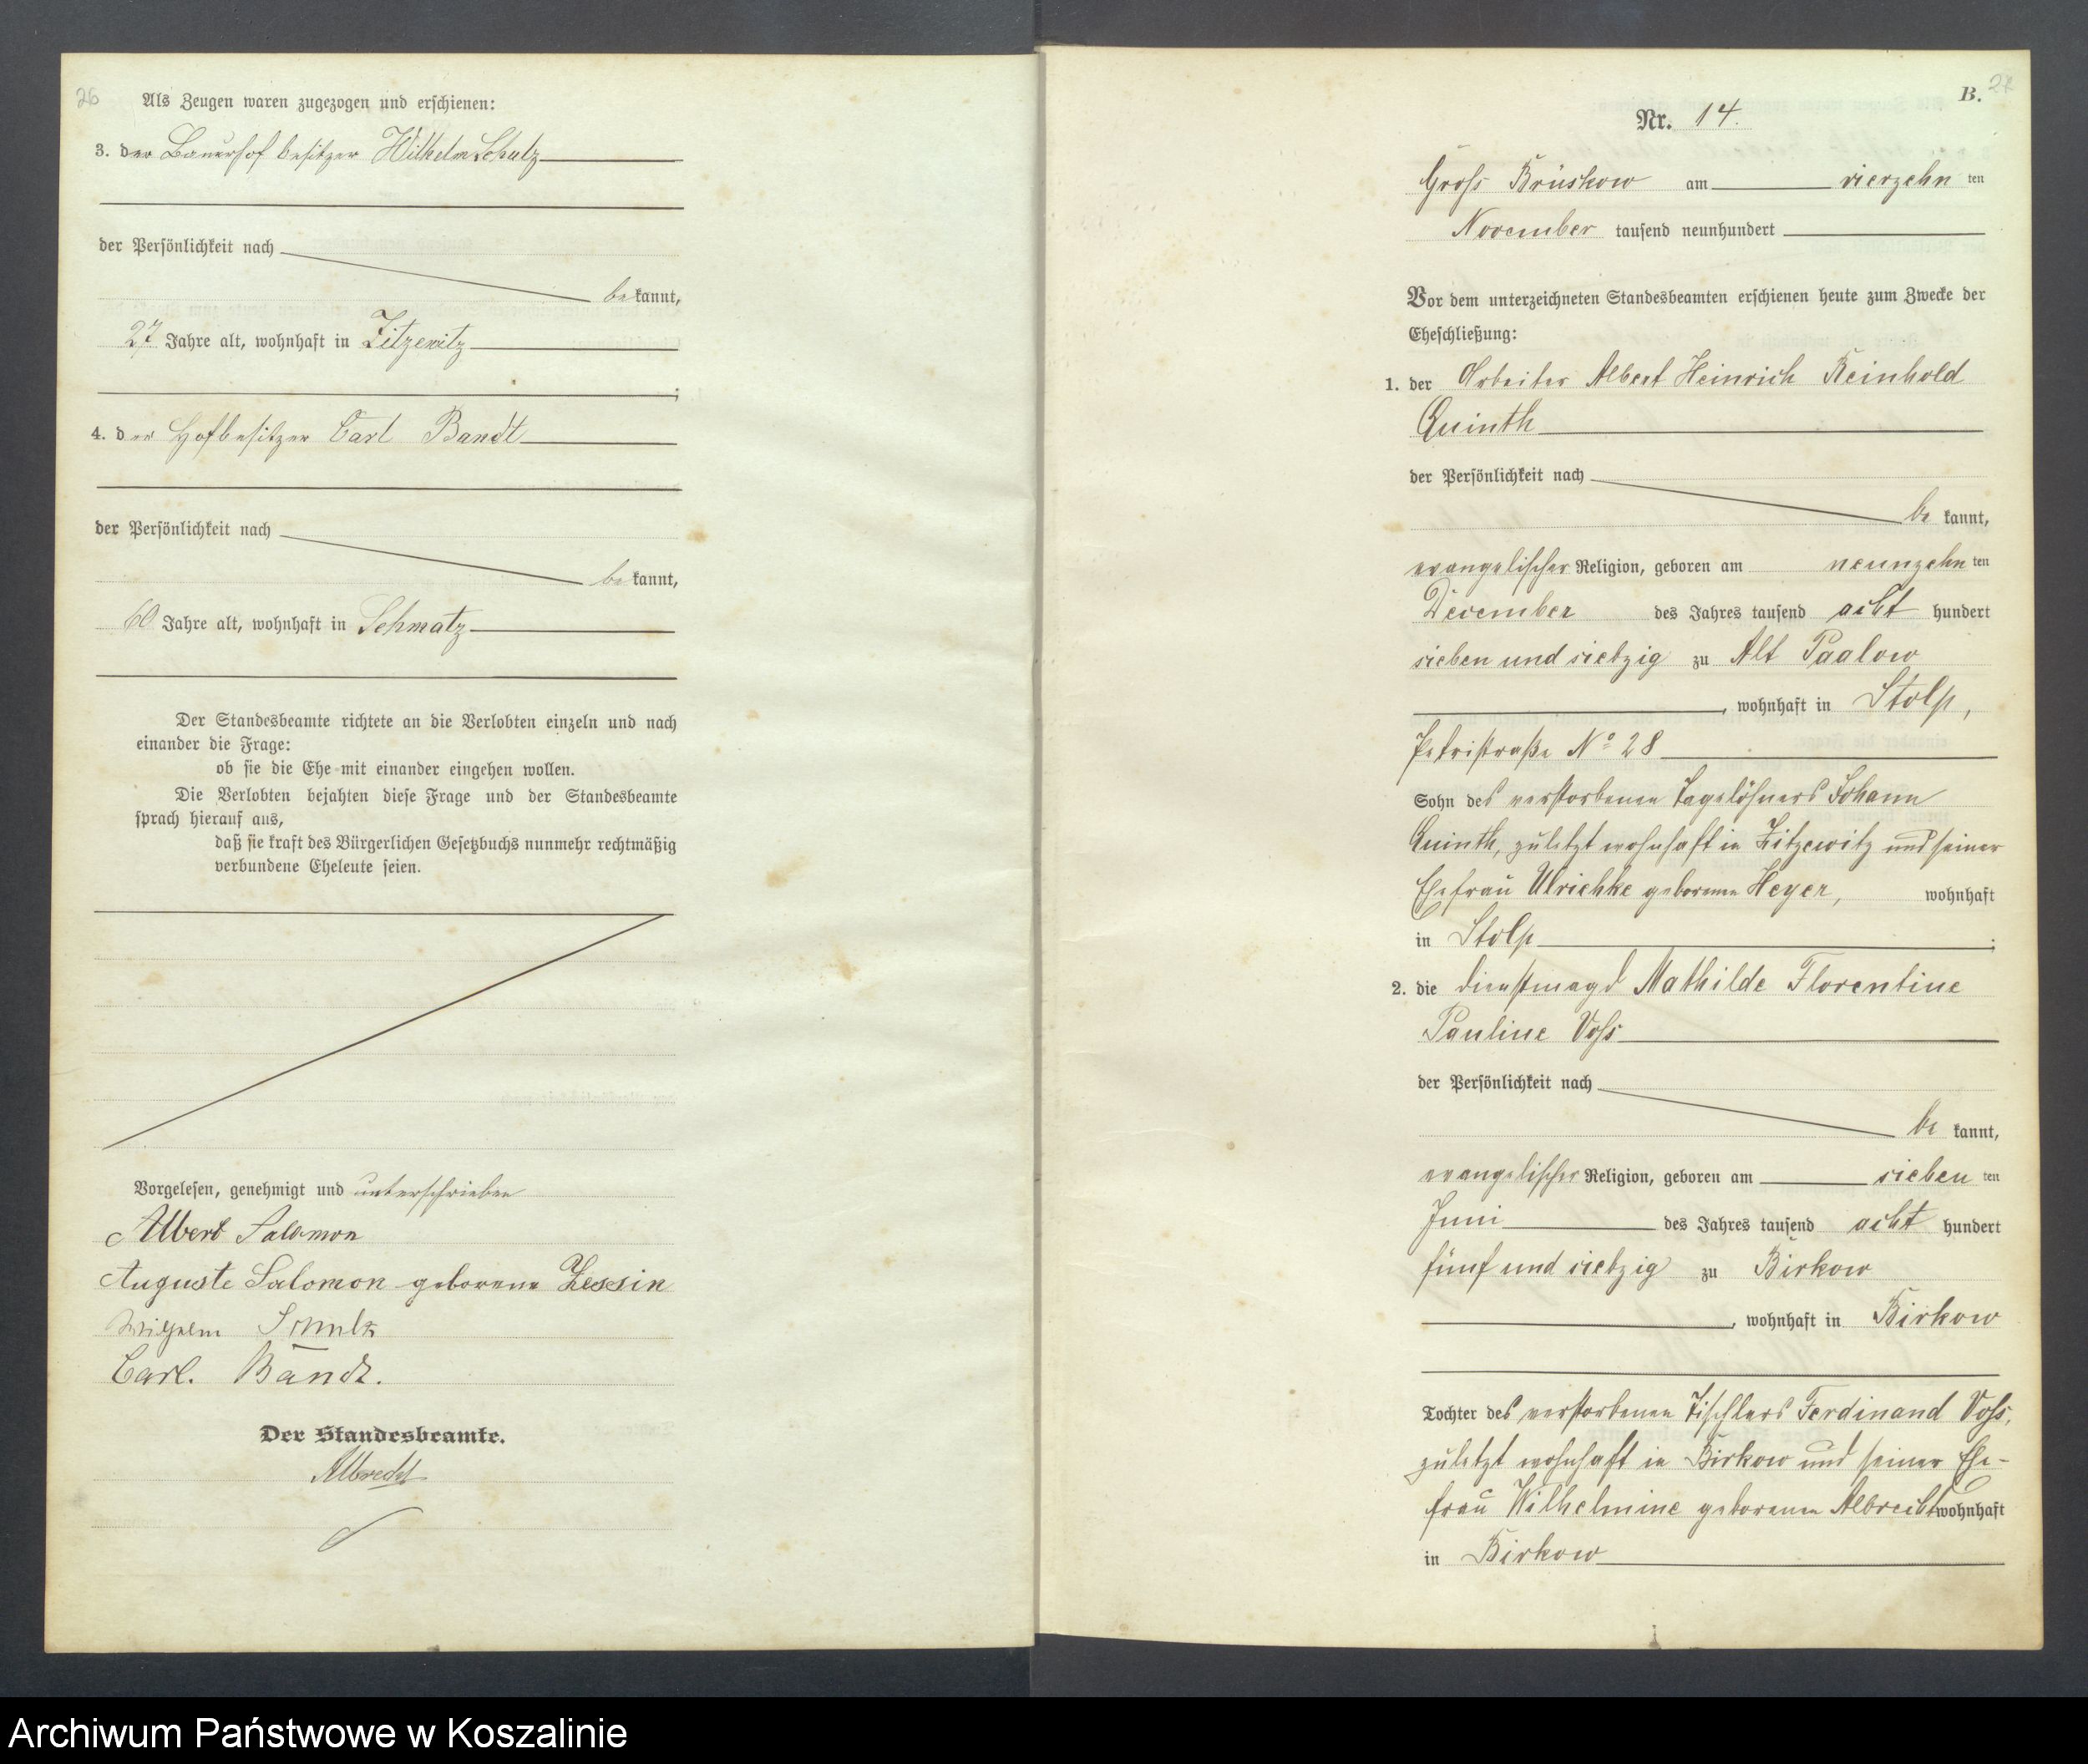 26
Als Zeugen waren zugezogen und erschienen:
3. der Bauerhofbesitzer Wilhelm Schulz
der Persönlichkeit nach
bekannt,
27 Jahre alt, wohnhaft in Zitzewitz
;
4. der Hofbesitzer Carl Bandt
der Persönlichkeit nach
bekannt,
60 Jahre alt, wohnhaft in Schmatz
Der Standesbeamte richtete an die Verlobten einzeln und nach
einander die Frage:
ob sie die Ehe mit einander eingehen wollen.
Die Verlobten bejahten diese Frage und der Standesbeamte
sprach hierauf aus,
daß sie kraft des Bürgerlichen Gesetzbuchs nunmehr rechtmäßig
verbundene Eheleute seien.
Vorgelesen, genehmigt und unterschrieben
Albert Salomon
Auguste Salomon geborene Zessin
Wilhelm Schulz
Carl. Bandt.
Der Standesbeamte.
Albrecht
B. 27
Nr. 14.
Gross Brüskow am vierzehn ten
November tausend neunhundert
Vor dem unterzeichneten Standesbeamten erschienen heute zum Zwecke der
Eheschließung:
1. der Arbeiter Albert Heinrich Reinhold
Quinth
der Persönlichkeit nach
be kannt,
evangelischer Religion, geboren am neunzehn ten
December des Jahres tausend acht hundert
sieben und siebzig zu Alt Paalow
, wohnhaft in Stolp,
Petristraße No 28
Sohn des verstorbenen Tagelöhners Johann
Quinth, zuletzt wohnhaft in Zitzewitz und seiner
Ehefrau Ulrichke geborenen Heyer, wohnhaft
in Stolp ;
2. die Dienstmagd Mathilde Florentine
Pauline Voss
der Persönlichkeit nach
be kannt,
evangelischer Religion, geboren am sieben ten
Juni des Jahres tausend acht hundert
fünf und siebzig zu Birkow
, wohnhaft in Birkow
Tochter des verstorbenen Tischlers Ferdinand Voss,
zuletzt wohnhaft in Birkow und seiner Ehe-
frau Wilhelmine geborenen Albrecht wohnhaft
in Birkow
Archiwum Państwowe w Koszalinie